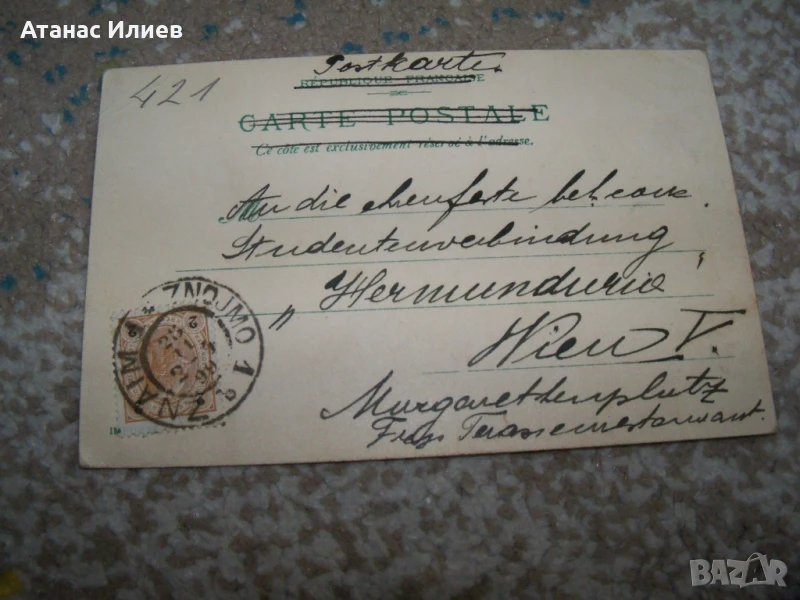 Атанас Илиев
Postkarte
421
RÉPUBLIQUE FRANÇAISE
CARTE POSTALE
Ce côté est exclusivement réservé à l'adresse.
An die ehrenfeste
Studentenverbindung
„Hermunduria"
Wien V.
Margarethenplatz
ZNAIM * ZNOJMO 1
2 2
BAZAR